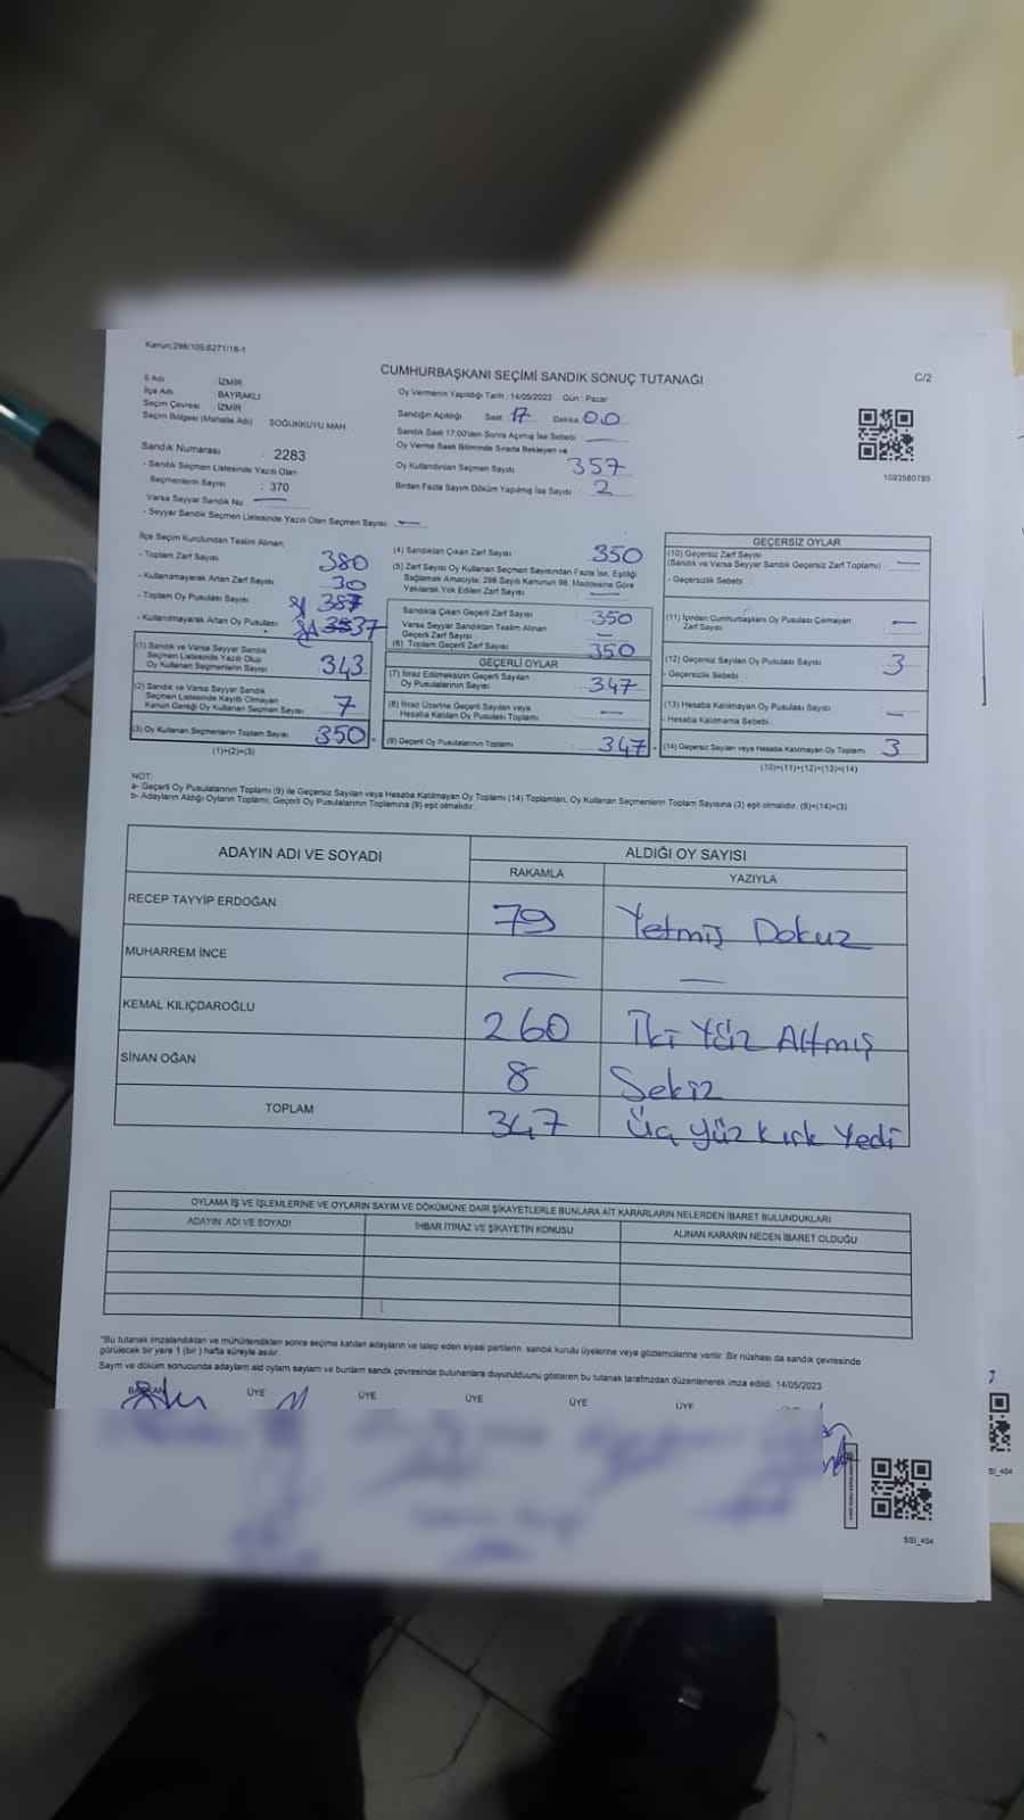 Kanun:298/105.6271/16-1
CUMHURBAŞKANI SEÇİMİ SANDIK SONUÇ TUTANAĞI
C/2
İl Adı : İZMİR
İlçe Adı : BAYRAKLI
Seçim Çevresi : İZMİR
Seçim Bölgesi (Mahalle Adı) SOĞUKKUYU MAH
Sandık Numarası : 2283
- Sandık Seçmen Listesinde Yazılı Olan
Seçmenlerin Sayısı : 370
Varsa Seyyar Sandık No —
- Seyyar Sandık Seçmen Listesinde Yazılı Olan Seçmen Sayısı —
Oy Vermenin Yapıldığı Tarih : 14/05/2023 Gün : Pazar
Sandığın Açıldığı Saat 17 Dakika 00
Sandık Saat 17:00'den Sonra Açılmış İse Sebebi —
Oy Verme Saati Bitiminde Sırada Bekleyen ve
Oy Kullandırılan Seçmen Sayısı 357
Birden Fazla Sayım Döküm Yapılmış İse Sayısı 2
1093580785
İlçe Seçim Kurulundan Teslim Alınan:
- Toplam Zarf Sayısı 380
- Kullanılmayarak Artan Zarf Sayısı 30
- Toplam Oy Pusulası Sayısı 387
- Kullanılmayarak Artan Oy Pusulası 37
(1) Sandık ve Varsa Seyyar Sandık
Seçmen Listesinde Yazılı Olup
Oy Kullanan Seçmenlerin Sayısı 343
(2) Sandık ve Varsa Seyyar Sandık
Seçmen Listesinde Kayıtlı Olmayan
Kanun Gereği Oy Kullanan Seçmen Sayısı 7
(3) Oy Kullanan Seçmenlerin Toplam Sayısı 350
(1)+(2)=(3)
(4) Sandıktan Çıkan Zarf Sayısı 350
(5) Zarf Sayısı Oy Kullanan Seçmen Sayısından Fazla İse, Eşitliği
Sağlamak Amacıyla; 298 Sayılı Kanunun 98. Maddesine Göre
Yakılarak Yok Edilen Zarf Sayısı —
Sandıkta Çıkan Geçerli Zarf Sayısı 350
Varsa Seyyar Sandıktan Teslim Alınan
Geçerli Zarf Sayısı —
(6) Toplam Geçerli Zarf Sayısı 350
GEÇERLİ OYLAR
(7) İtiraz Edilmeksizin Geçerli Sayılan
Oy Pusulalarının Sayısı 347
(8) İtiraz Üzerine Geçerli Sayılan veya
Hesaba Katılan Oy Pusulası Toplamı —
(9) Geçerli Oy Pusulalarının Toplamı 347
GEÇERSİZ OYLAR
(10) Geçersiz Zarf Sayısı
(Sandık ve Varsa Seyyar Sandık Geçersiz Zarf Toplamı) —
- Geçersizlik Sebebi
(11) İçinden Cumhurbaşkanı Oy Pusulası Çıkmayan
Zarf Sayısı —
(12) Geçersiz Sayılan Oy Pusulası Sayısı 3
- Geçersizlik Sebebi
(13) Hesaba Katılmayan Oy Pusulası Sayısı —
- Hesaba Katılmama Sebebi
(14) Geçersiz Sayılan veya Hesaba Katılmayan Oy Toplamı 3
(10)+(11)+(12)+(13)=(14)
NOT:
a- Geçerli Oy Pusulalarının Toplamı (9) ile Geçersiz Sayılan veya Hesaba Katılmayan Oy Toplamı (14) Toplamları, Oy Kullanan Seçmenlerin Toplam Sayısına (3) eşit olmalıdır. (9)+(14)=(3)
b- Adayların Aldığı Oyların Toplamı, Geçerli Oy Pusulalarının Toplamına (9) eşit olmalıdır.
ADAYIN ADI VE SOYADI
ALDIĞI OY SAYISI
RAKAMLA YAZIYLA
RECEP TAYYİP ERDOĞAN 79 Yetmiş Dokuz
MUHARREM İNCE — —
KEMAL KILIÇDAROĞLU 260 İki Yüz Altmış
SİNAN OĞAN 8 Sekiz
TOPLAM 347 Üç yüz kırk Yedi
OYLAMA İŞ VE İŞLEMLERİNE VE OYLARIN SAYIM VE DÖKÜMÜNE DAİR ŞİKAYETLERLE BUNLARA AİT KARARLARIN NELERDEN İBARET BULUNDUKLARI
ADAYIN ADI VE SOYADI İHBAR İTİRAZ VE ŞİKAYETİN KONUSU ALINAN KARARIN NEDEN İBARET OLDUĞU
"Bu tutanak imzalandıktan ve mühürlendikten sonra seçime katılan adayların ve talep eden siyasi partilerin, sandık kurulu üyelerine veya gözlemcilerine verilir. Bir nüshası da sandık çevresinde
görülecek bir yere 1 (bir) hafta süreyle asılır.
Sayım ve döküm sonucunda adayların aldığı oyların sayıları ve bunların sandık çevresinde bulunanlara duyurulduğunu gösteren bu tutanak tarafımızdan düzenlenerek imza edildi. 14/05/2023
BAŞKAN ÜYE ÜYE ÜYE ÜYE ÜYE
SSI_404